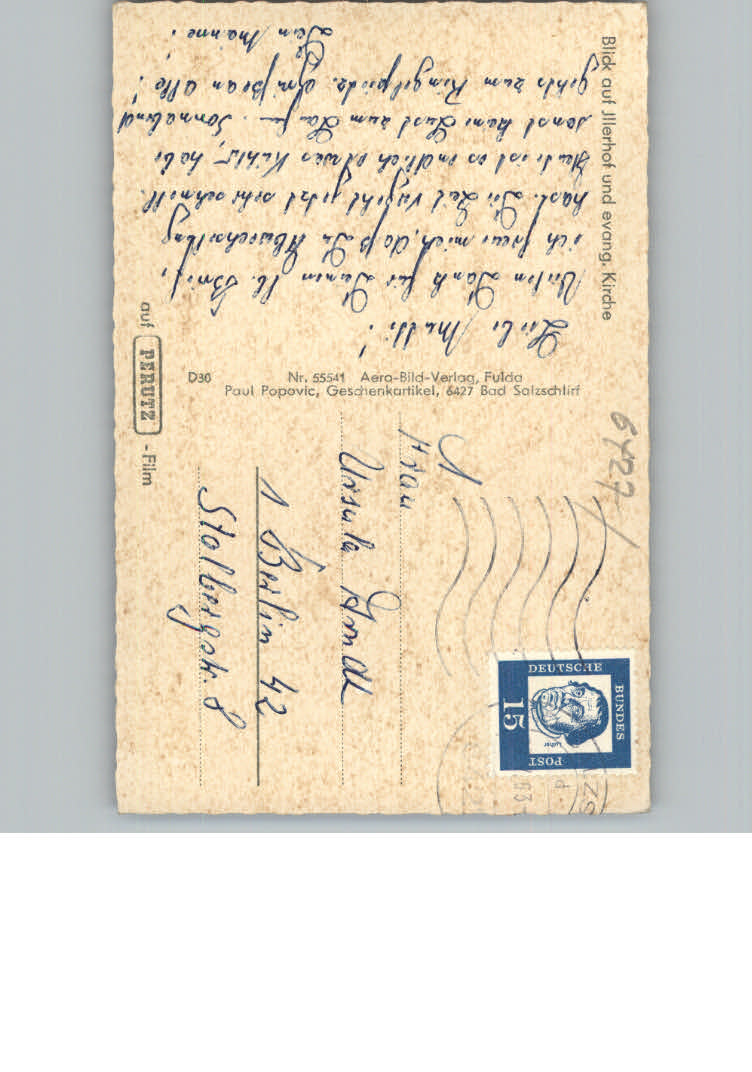 Blick auf Jllerhof und evang. Kirche
Liebe Mutti!
Vielen Dank für Deinen lb. Brief,
ich freue mich, daß Du Abwechselung
hast. Die Zeit vergeht jetzt sehr schnell.
Heute ist es endlich etwas kühler, habe
sonst keine Lust zum Sonnabend
gehts zum Ringelpietz. Grüße an alle!
Dein Männe!
D30 Nr. 55541 Aero-Bild-Verlag, Fulda
Paul Popovic, Geschenkartikel, 6427 Bad Salzschlirf
auf PERUTZ -Film
6427
Frau
Ursula Arndt
1 Berlin 42
Stolbergstr. 8
DEUTSCHE
BUNDES
POST
15
Luther